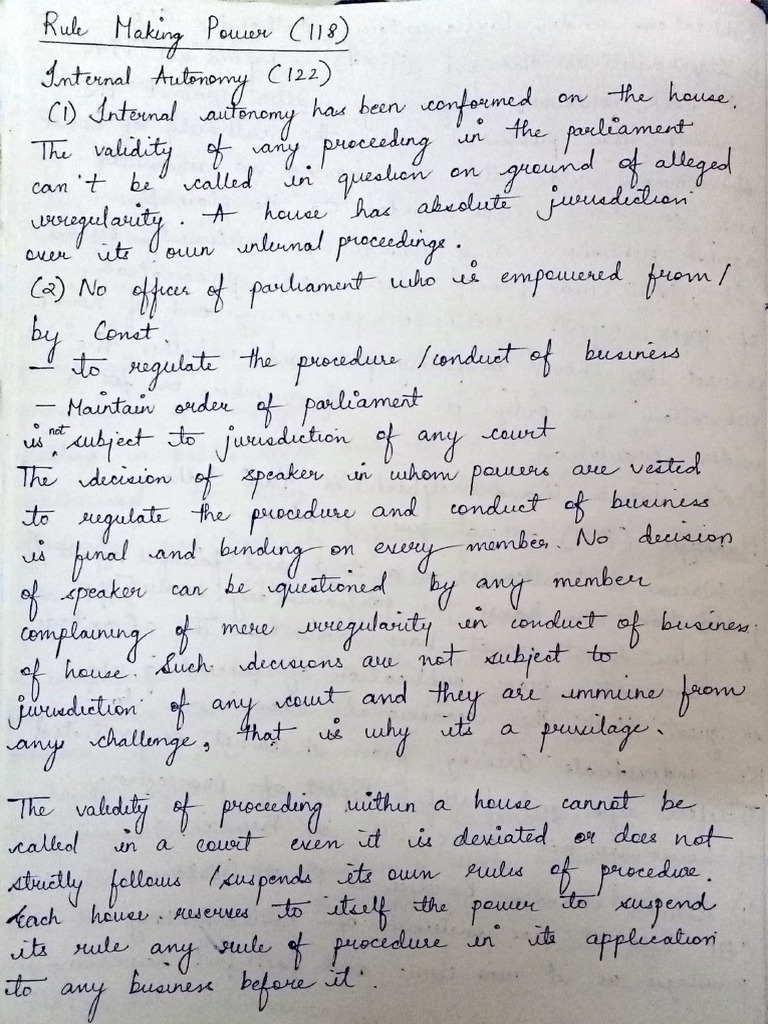 Rule Making Power (118)
Internal Autonomy (122)
(1) Internal autonomy has been conformed on the house.
The validity of any proceeding in the parliament
can't be called in question on ground of alleged
irregularity. A house has absolute jurisdiction
over its own internal proceedings.
(2) No officer of parliament who is empowered from/
by Const.
– to regulate the procedure /conduct of business
– Maintain order of parliament
is not subject to jurisdiction of any court
The decision of speaker in whom powers are vested
to regulate the procedure and conduct of business
is final and binding on every member. No decision
of speaker can be questioned by any member
complaining of mere irregularity in conduct of business
of house. Such decisions are not subject to
jurisdiction of any court and they are immune from
any challenge, that is why its a privilage.
The validity of proceeding within a house cannot be
called in a court even it is deviated or does not
strictly follows /suspends its own rules of procedure.
Each house reserves to itself the power to suspend
its rule any rule of procedure in its application
to any business before it.